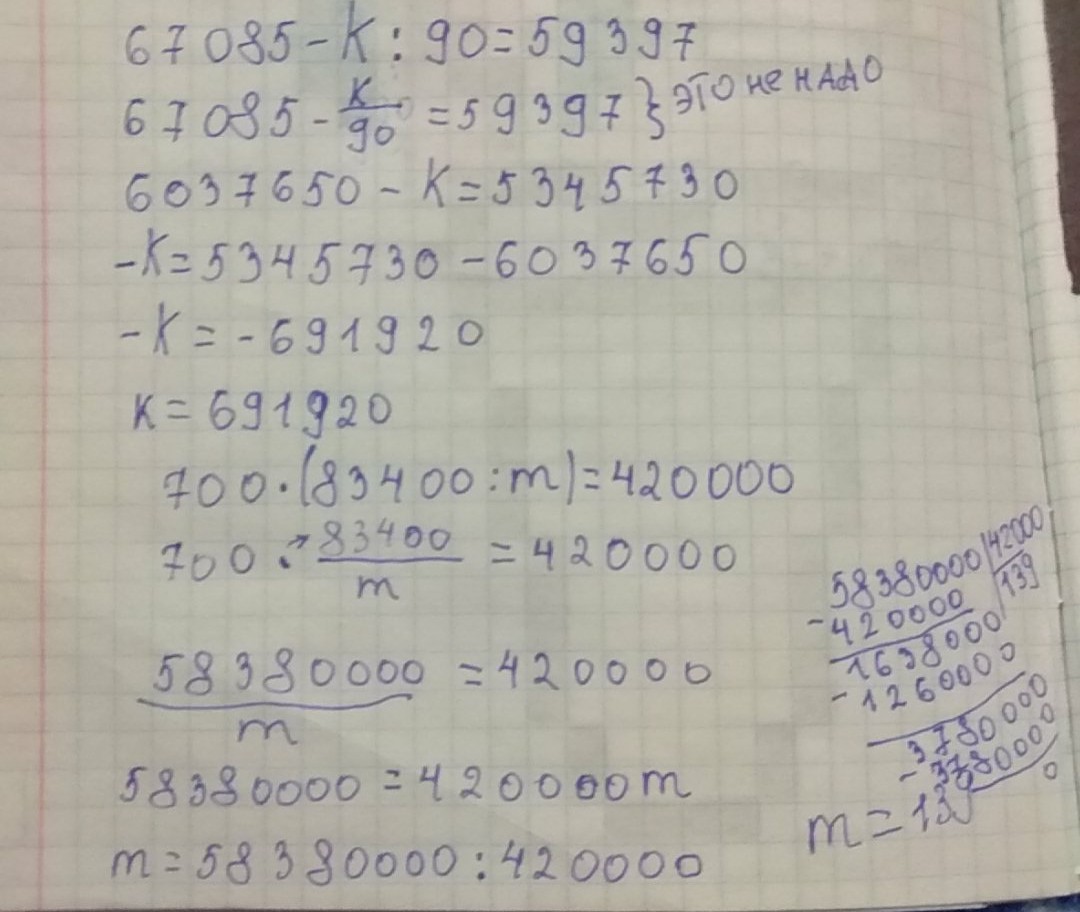 67085-K:90=59397
67085-K/90=59397 } ЭТО НЕ НАДО
6037650-K=5345730
-K=5345730-6037650
-K=-691920
K=691920
700·(83400:m)=420000
700·83400/m=420000
58380000/m=420000
58380000=420000m
m=58380000:420000
58380000|42000
-420000 |139
1638000
-1260000
3780000
-378000
0
m=139